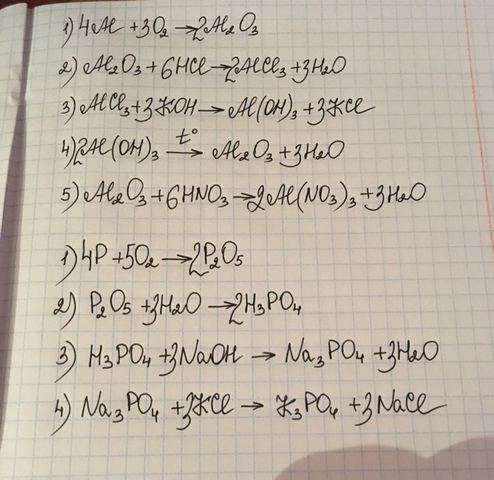 1) 4Al + 3O₂ → 2Al₂O₃
2) Al₂O₃ + 6HCl → 2AlCl₃ + 3H₂O
3) AlCl₃ + 3KOH → Al(OH)₃ + 3KCl
4) 2Al(OH)₃ t° → Al₂O₃ + 3H₂O
5) Al₂O₃ + 6HNO₃ → 2Al(NO₃)₃ + 3H₂O
1) 4P + 5O₂ → 2P₂O₅
2) P₂O₅ + 3H₂O → 2H₃PO₄
3) H₃PO₄ + 3NaOH → Na₃PO₄ + 3H₂O
4) Na₃PO₄ + 3KCl → K₃PO₄ + 3NaCl